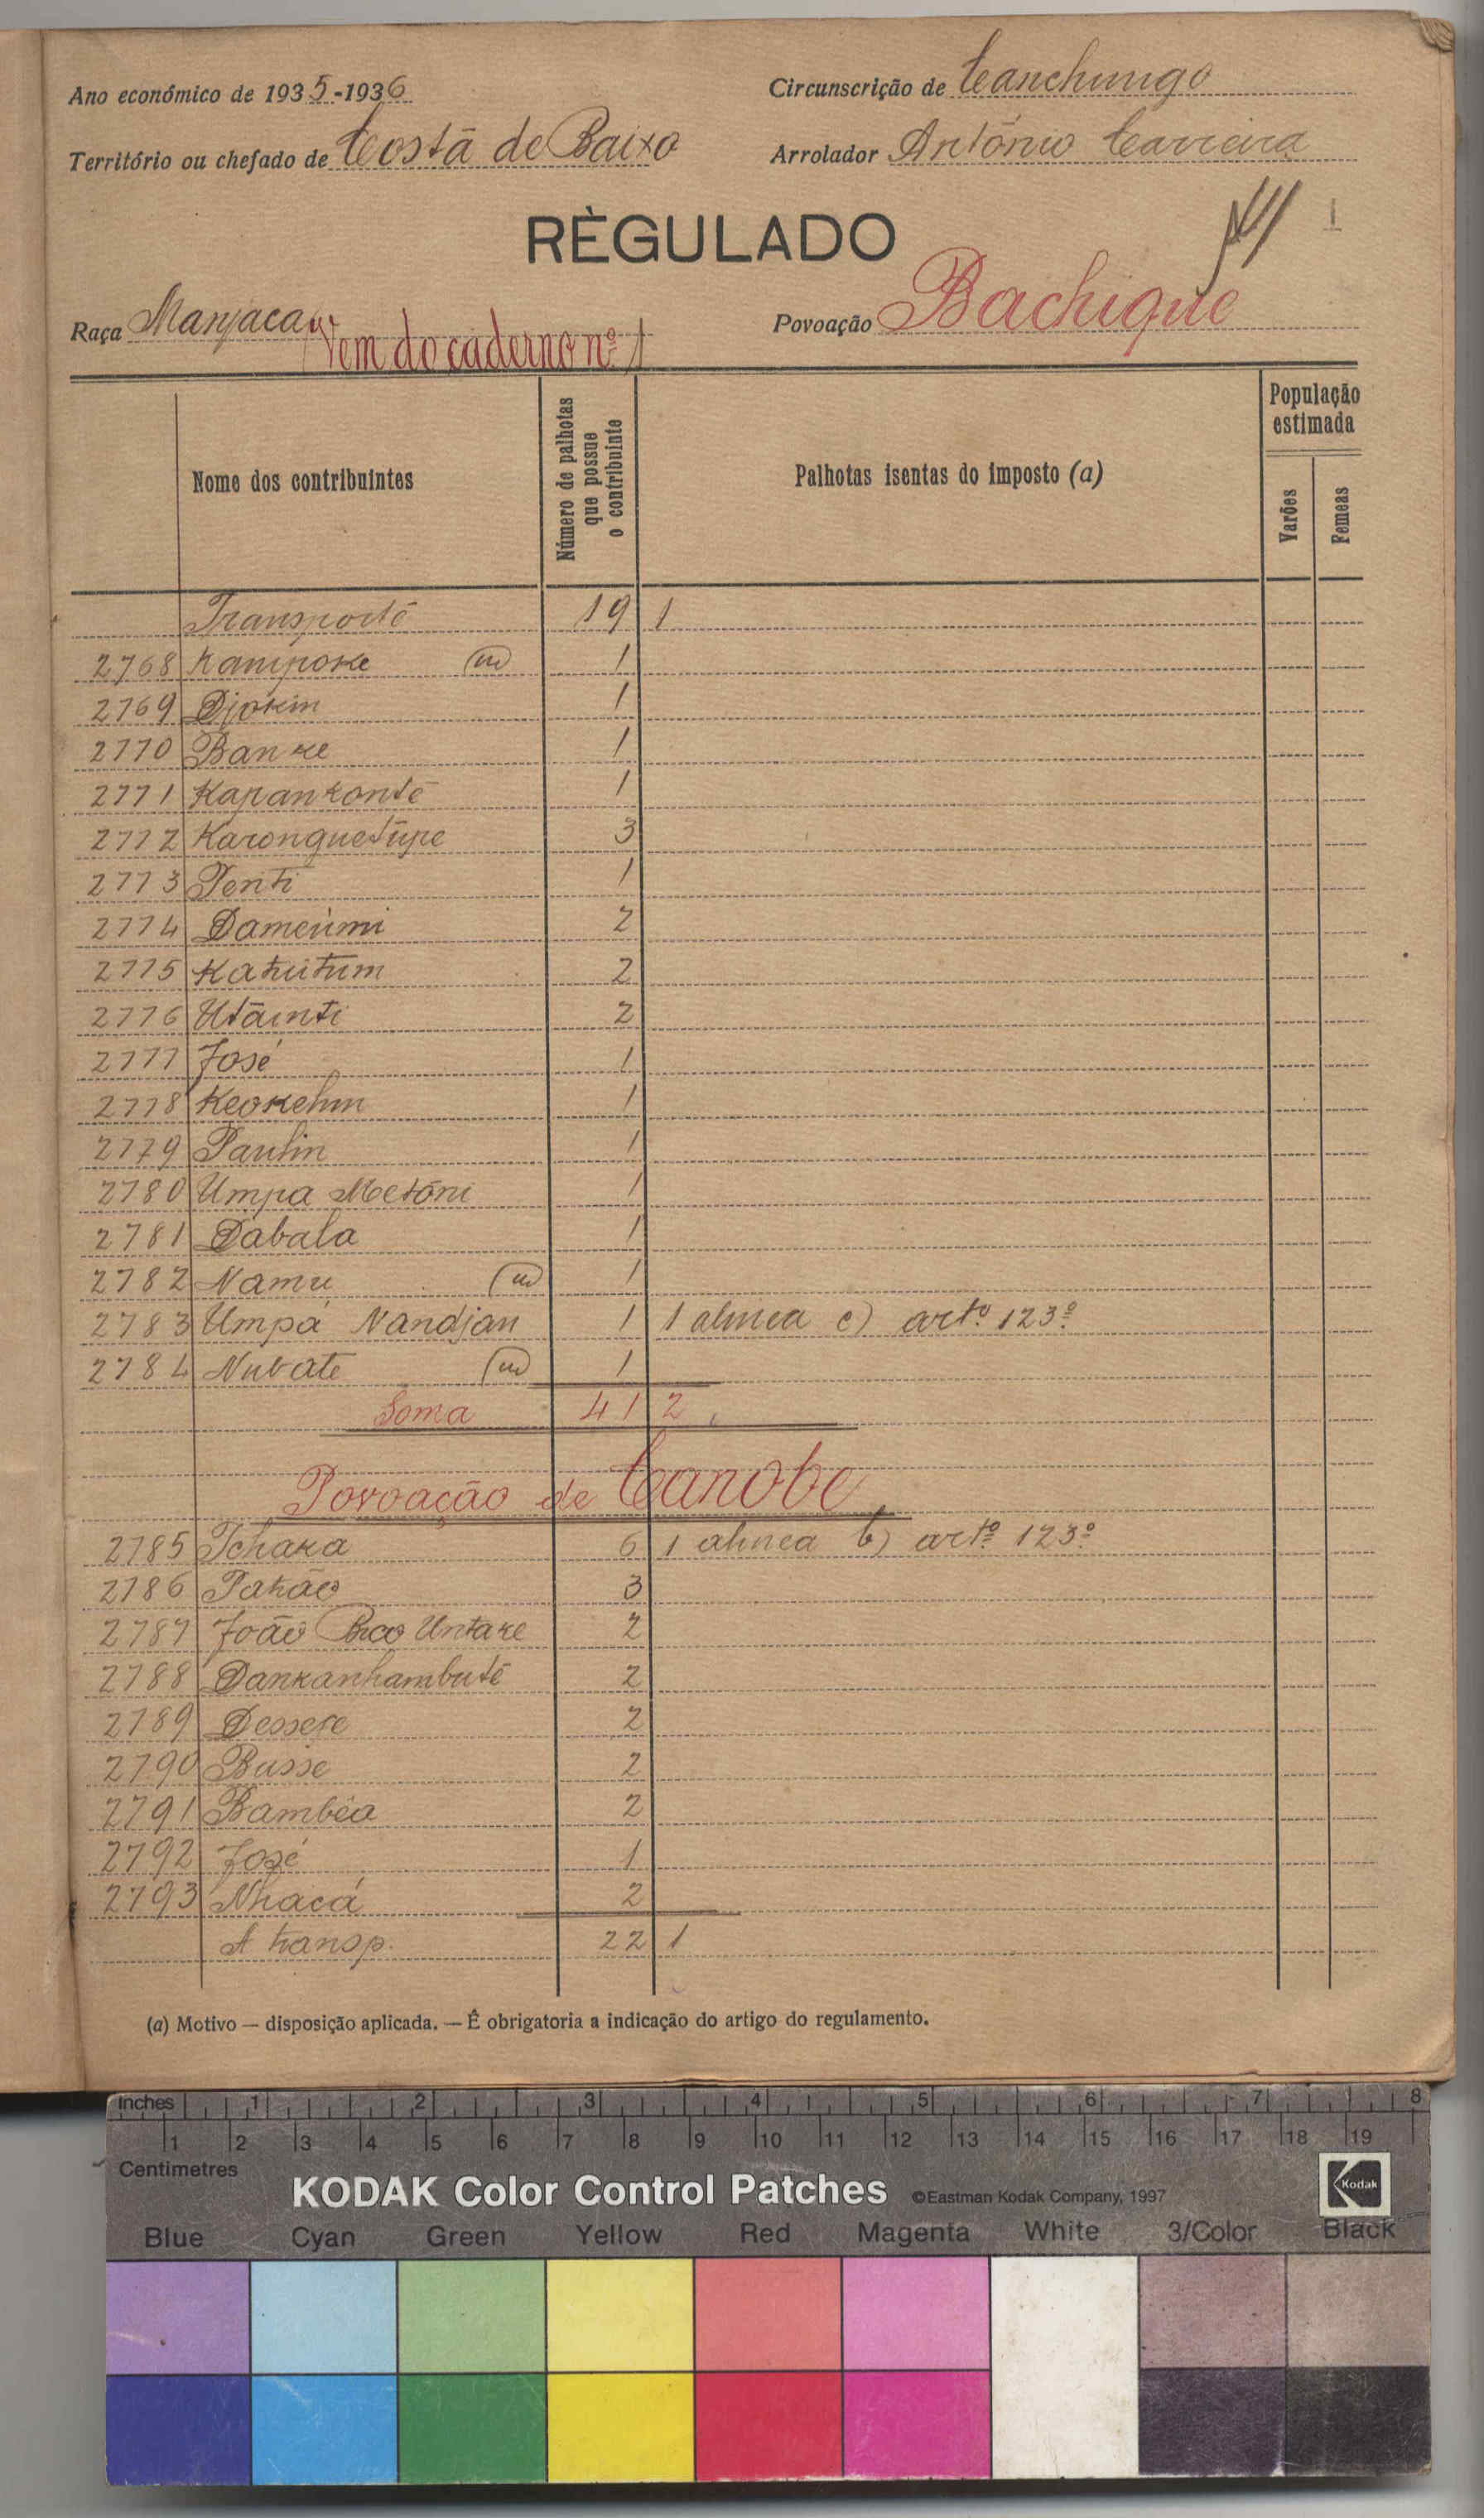 Ano económico de 1935-1936
Circunscrição de Canchungo
Território ou chefado de Costa de Baixo
Arrolador António Carreira
RÈGULADO
1
Raça Manjaca
Povoação Bachique
Vem do caderno nº 1
Nome dos contribuintes
Número de palhotas que possue o contribuinte
Palhotas isentas do imposto (a)
População estimada
Varões
Femeas
Transporte 19 1
2768 Kampoke (m) 1
2769 Djokin 1
2770 Banke 1
2771 Kapankonte 1
2772 Karonguetupe 3
2773 Penti 1
2774 Dameumi 2
2775 Katutum 2
2776 Utainti 2
2777 José 1
2778 Keokehm 1
2779 Paulin 1
2780 Umpa Metóni 1
2781 Dabala 1
2782 Namu (m) 1
2783 Umpá Nandjan 1 1 alinea c) artº 123º
2784 Nubate (m) 1
Soma 41 2
Povoação de Canobe
2785 Tchaka 6 1 alinea b) artº 123º
2786 Patrão 3
2787 João Pico Untake 2
2788 Dankanhambuté 2
2789 Dessefe 2
2790 Busse 2
2791 Bambêa 2
2792 José 1
2793 Nhacá 2
A transp. 22 1
(a) Motivo — disposição aplicada. — É obrigatoria a indicação do artigo do regulamento.
Inches 1 2 3 4 5 6 7 8
1 2 3 4 5 6 7 8 9 10 11 12 13 14 15 16 17 18 19
Centimetres
KODAK Color Control Patches ©Eastman Kodak Company, 1997 Kodak
Blue Cyan Green Yellow Red Magenta White 3/Color Black